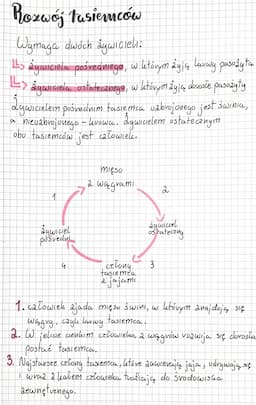 Rozwój tasiemców
Wymaga dwóch żywicieli:
żywiciela pośredniego, w którym żyją larwy pasożyta
żywiciela ostatecznego, w którym żyją dorosłe pasożyty
Żywicielem pośrednim tasiemca uzbrojonego jest świnia,
a nieuzbrojonego - krowa. Żywicielem ostatecznym
obu tasiemców jest człowiek.
mięso
z wągrami
1
2
żywiciel
pośredni
żywiciel
ostateczny
4
3
człony
tasiemca
z jajami
1. człowiek zjada mięso świni, w którym znajdują się
wągry, czyli larwy tasiemca.
2. W jelicie cienkim człowieka z wągrów rozwija się dorosła
postać tasiemca.
3. Najstarsze człony tasiemca, które zawierają jaja, odrywają się
i wraz z kałem człowieka trafiają do środowiska
zewnętrznego.